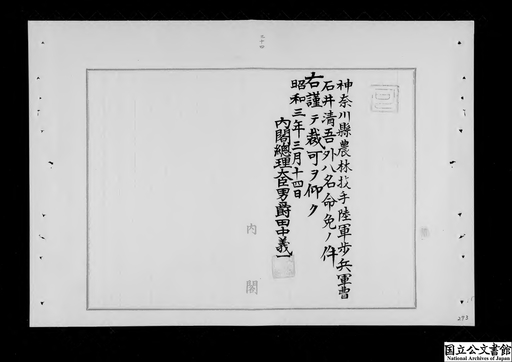 神奈川縣農林技手陸軍歩兵軍曹
石井清吾外八名命免ノ件
右謹テ裁可ヲ仰ク
昭和三年三月十四日
内閣總理大臣男爵田中義一
内閣
293
国立公文書館
National Archives of Japan